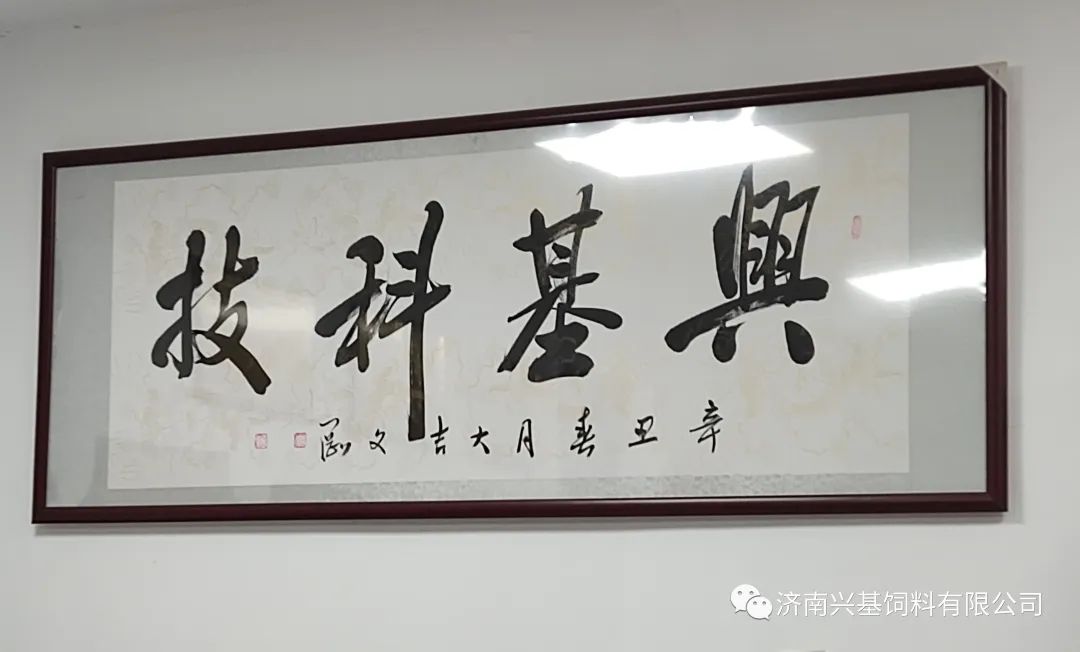 興基科技
辛丑春月大吉文
济南兴基饲料有限公司